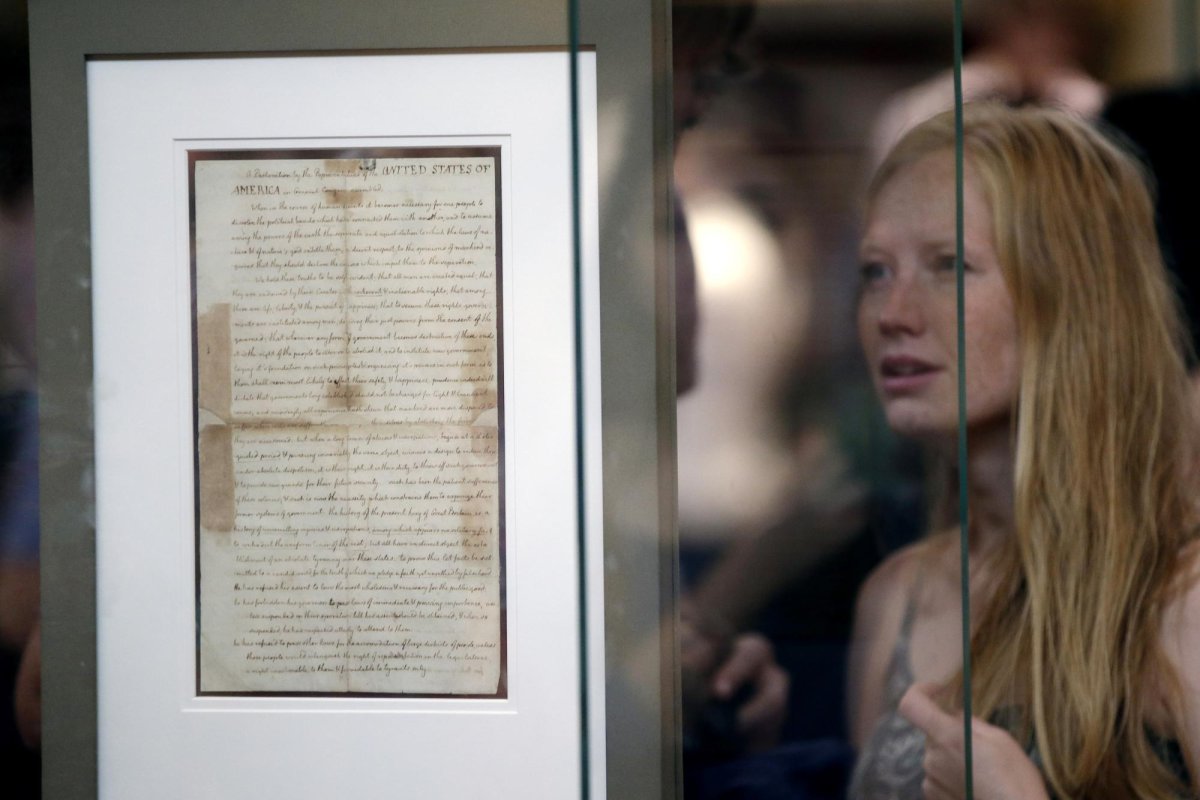 A Declaration by the Representatives of the UNITED STATES OF
AMERICA in General Congress assembled.
When in the course of human events it becomes necessary for one people to
dissolve the political bands which have connected them with another, and to assume
among the powers of the earth the separate and equal station to which the laws of na-
ture & of nature's god entitle them, a decent respect to the opinions of mankind re-
quires that they should declare the causes which impel them to the separation.
We hold these truths to be self evident: that all men are created equal; that
they are endowed by their Creator with inherent & inalienable rights; that among
these are life, liberty & the pursuit of happiness; that to secure these rights, govern-
ments are instituted among men, deriving their just powers from the consent of the
governed; that whenever any form of government becomes destructive of these ends,
it is the right of the people to alter or to abolish it, and to institute new government,
laying it's foundation on such principles & organising it's powers in such form as to
them shall seem most likely to effect their safety & happiness. prudence indeed will
dictate that governments long established should not be changed for light & transient
causes; and accordingly all experience hath shewn that mankind are more disposed to
suffer while evils are sufferable themselves by abolishing the forms
they are accustomed. but when a long train of abuses & usurpations, begun at a distin-
guished period & pursuing invariably the same object, evinces a design to reduce them
under absolute despotism, it is their right, it is their duty, to throw off such government
& to provide new guards for their future security. such has been the patient sufferance
of these colonies; & such is now the necessity which constrains them to expunge their
former systems of government. the history of the present king of Great Britain is a
history of unremitting injuries & usurpations, among which appears no solitary fact
to contradict the uniform tenor of the rest, but all have in direct object the estab-
lishment of an absolute tyranny over these states. to prove this let facts be sub-
mitted to a candid world, for the truth of which we pledge a faith yet unsullied by falsehood.
he has refused his assent to laws the most wholesome & necessary for the public good.
he has forbidden his governors to pass laws of immediate & pressing importance, un-
less suspended in their operation till his assent should be obtained; & when so
suspended, he has neglected utterly to attend to them.
he has refused to pass other laws for the accommodation of large districts of people, unless
those people would relinquish the right of representation in the legislature,
a right inestimable to them & formidable to tyrants only.